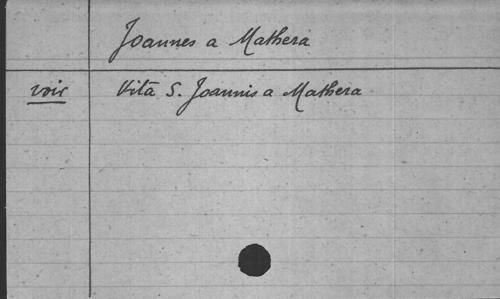 Joannes a Mathera
voir Vita S. Joannis a Mathera